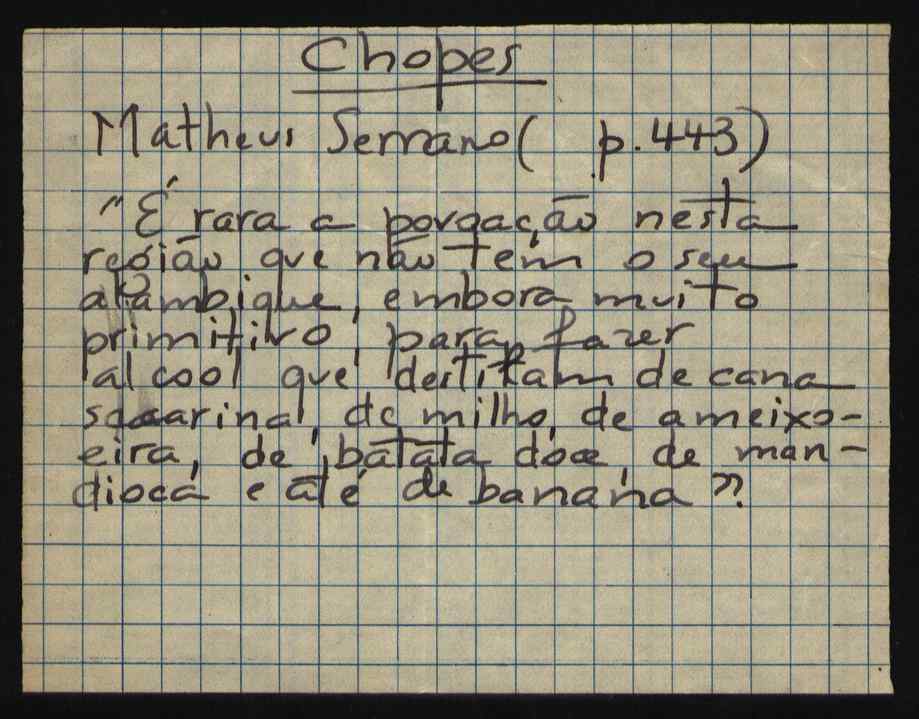 Chopes
Matheus Serrano ( p. 443)
"É rara a povoação nesta
região que não tem o seu
alambique, embora muito
primitivo, para fazer
alcool que destilam de cana
sacarina, de milho, de ameixo-
eira, de batata doce, de man-
dioca e até de banana".